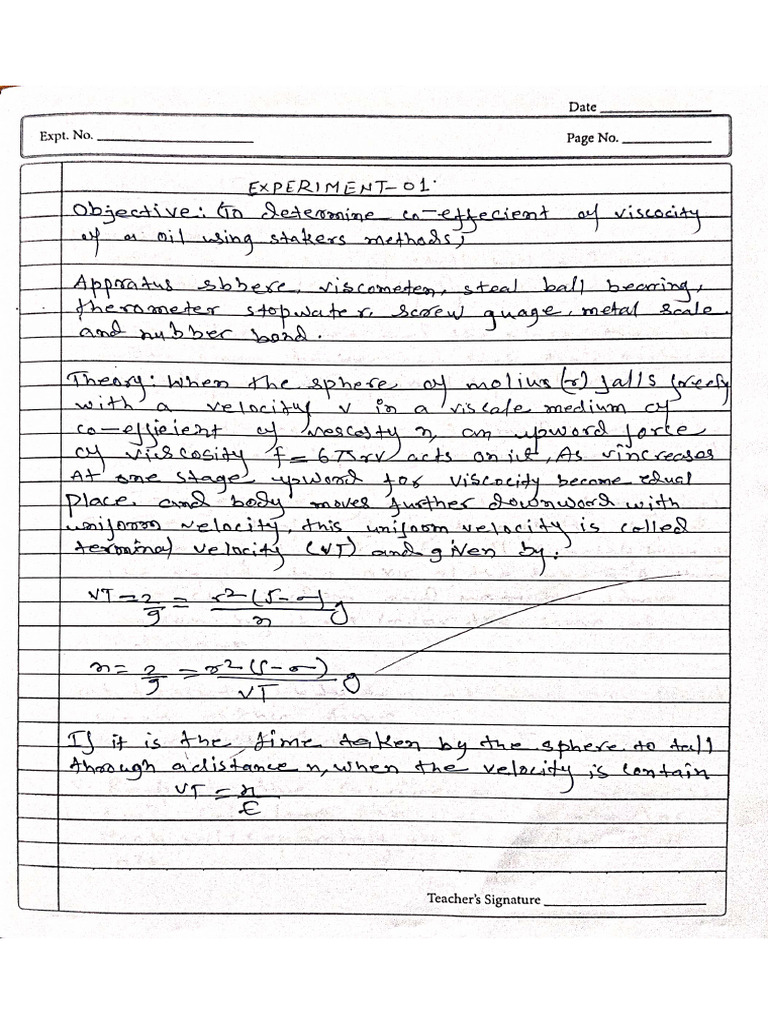 Date
Expt. No.
Page No.
EXPERIMENT-01.
Objective: To determine co-effecient of viscocity
of a oil using stakers methods,
Appratus sbhere, viscometen, steal ball bearing,
therometer stopwater, screw guage, metal scale
and nubber band.
Theory: When the sphere of molius (r) falls freefy
with a velocity v in a viscale medium of
co-effieient of vescosty n, an upword force
of viscosity f = 6πrv acts on it, As v increases
At one stage upword for viscocity become edual
place, and body moves further downword with
unifoom velocity, this unifoom velocity is called
terminal velocity (VT) and given by.
VT = 2/9 = r2(ρ-σ)/n g
n = 2/9 = r2(ρ-σ)/VT g
If it is the time taken by the sphere to tall
through a distance n, when the velocity is contain
VT = n/t
Teacher's Signature